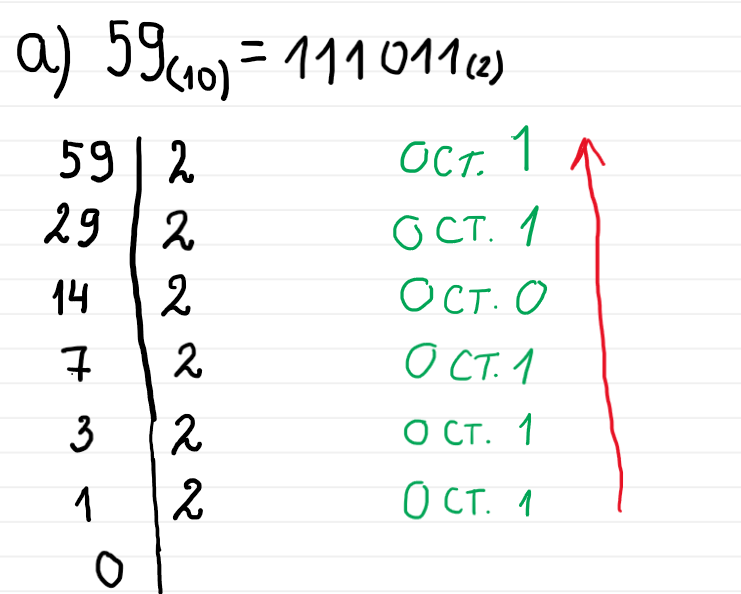 а) 59(10) = 111011(2)
59 2 ост. 1
29 2 ост. 1
14 2 ост. 0
7 2 ост. 1
3 2 ост. 1
1 2 ост. 1
0